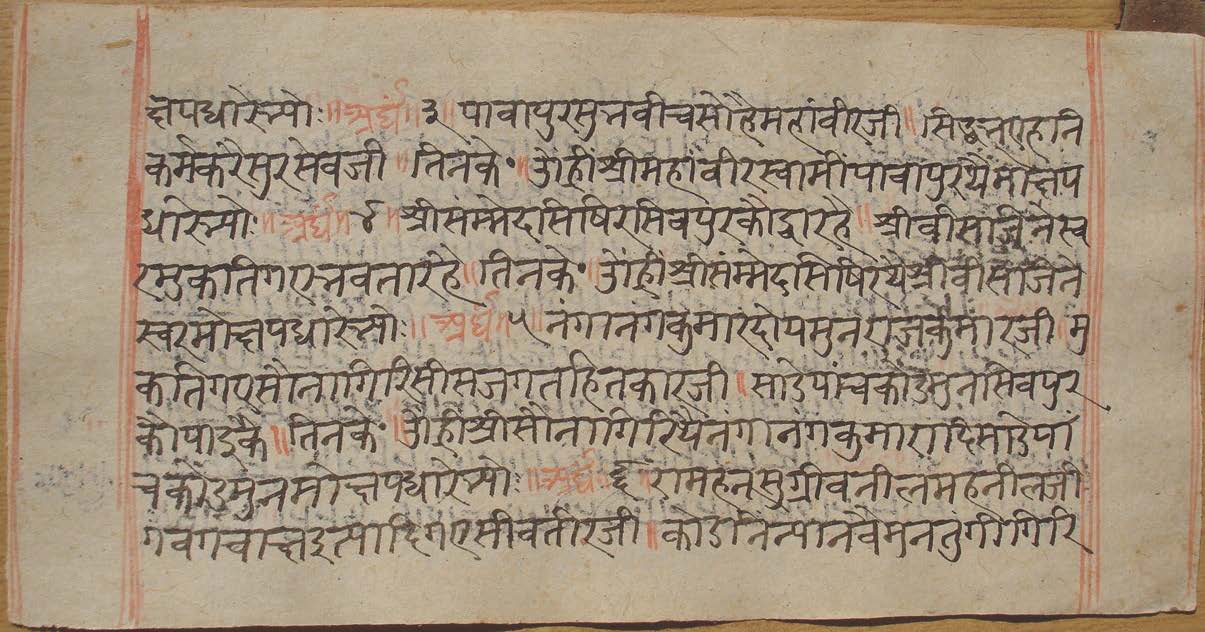 क्षपद्यारेभ्योः ॥अर्घं॥ ३ ॥ पावापुरसुनवीचसोहैमहांवीरजी ॥ सिद्धनएहानि
कर्मकरेसुरसेवजी ॥ तिनके॰ ॥ ओंह्रींश्रीमहांवीरस्वामीपावापुरथैमोक्षप
द्यारेभ्योः ॥अर्घं॥ ४ ॥ श्रीसंम्मेदासिषिरसिवपुरकौद्वारहै ॥ श्रीवीसजिनेस्व
रमुकातिगएभवतारहे ॥ तिनके॰ ॥ ओंह्रींश्रीसंम्मेदासिषिरथैश्रीवीसजिने
स्वरमोक्षपद्यारेभ्योः ॥ अर्घं॥ ५ ॥ नंगानंगकुमारदोयमुनराजकुमारजी ॥ मु
कतिगएसोनागिरिसीसजगतहितकारजी ॥ साडेपांचकोडमुनसिवपुर
कोपाडुकै ॥ तिनके॰ ॥ ओंह्रींश्रीसोनागिरिथैनंगानंगकुमारादिसाडेपां
चकोडमुनमोक्षपद्यारेभ्योः ॥ अर्घं॥ ६ ॥ रामहनसुग्रीवनीलमहनीलजी
गवगवाक्षइत्यादिगएसीवतीरजी ॥ कोडनिन्यानवैमुनतुंगीगिरि